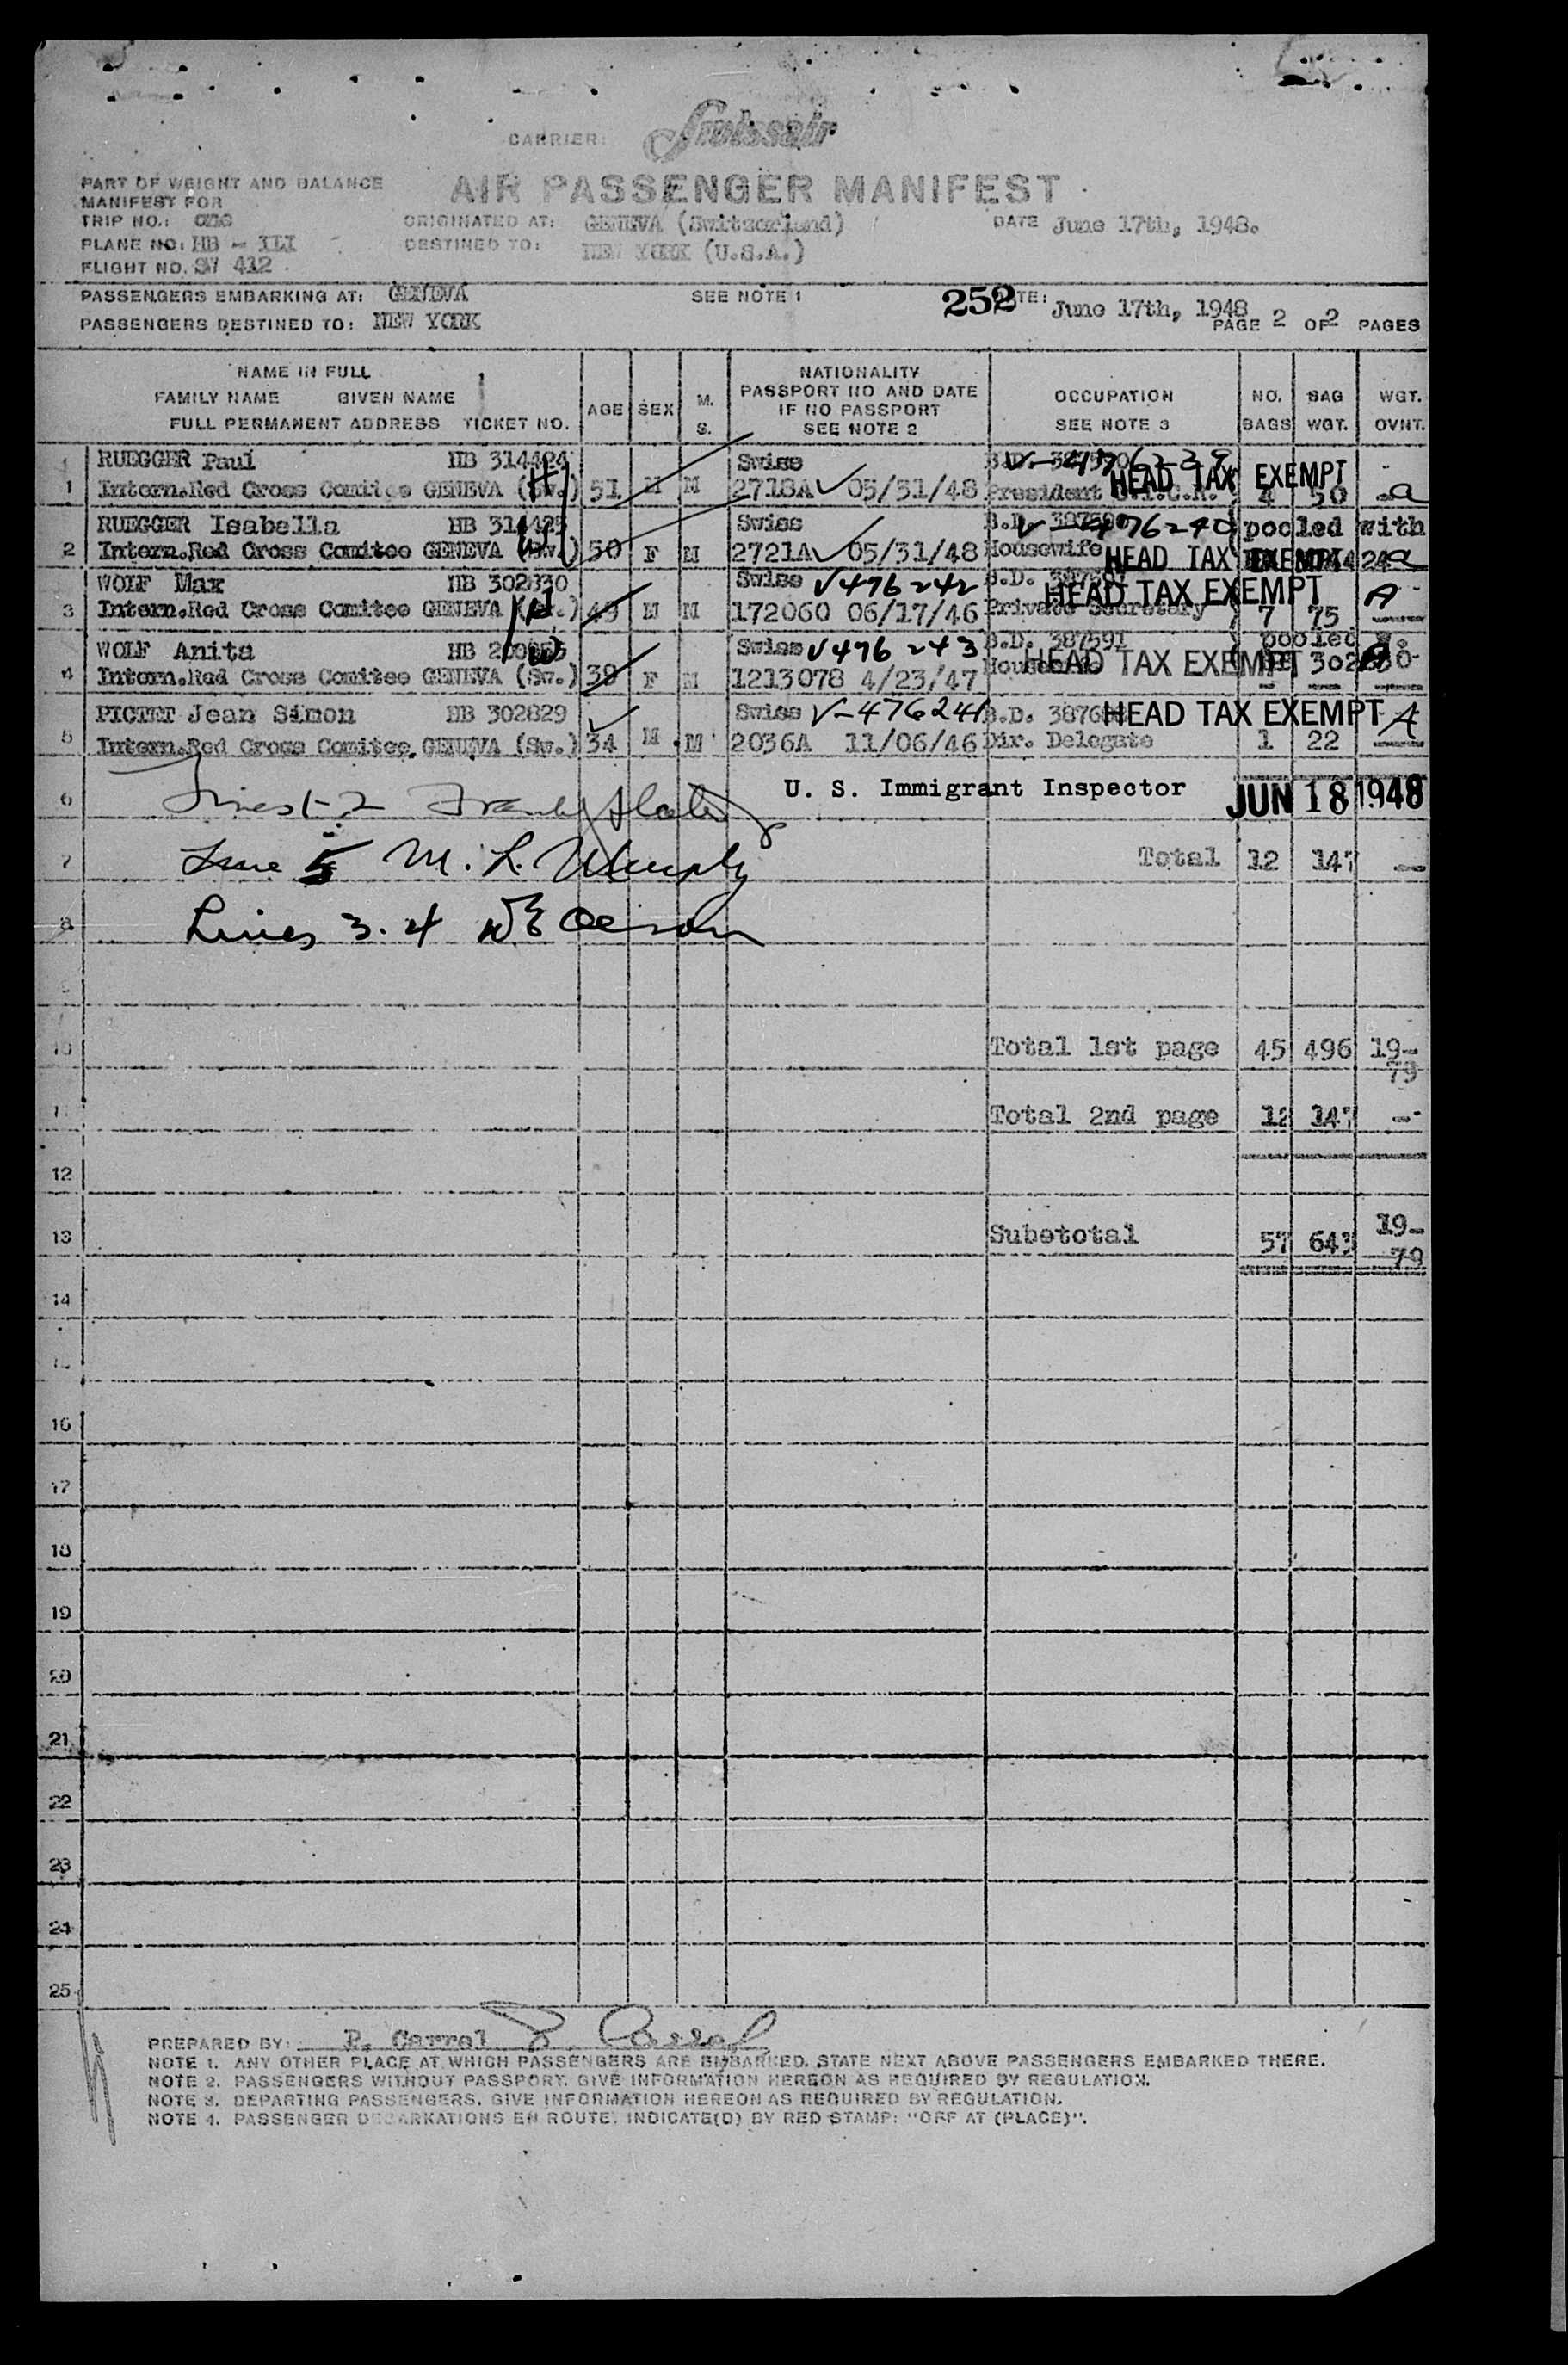 CARRIER: Swissair
AIR PASSENGER MANIFEST
PART OF WEIGHT AND BALANCE
MANIFEST FOR
TRIP NO.: ONE
PLANE NO: HB - ILI
FLIGHT NO. SW 412
ORIGINATED AT: GENEVA (Switzerland)
DESTINED TO: NEW YORK (U.S.A.)
DATE June 17th, 1948.
PASSENGERS EMBARKING AT: GENEVA
PASSENGERS DESTINED TO: NEW YORK
SEE NOTE 1
252
June 17th, 1948
PAGE 2 OF 2 PAGES
NAME IN FULL
FAMILY NAME GIVEN NAME
FULL PERMANENT ADDRESS TICKET NO.
AGE SEX M. S.
NATIONALITY
PASSPORT NO AND DATE
IF NO PASSPORT
SEE NOTE 2
OCCUPATION
SEE NOTE 3
NO. BAGS
BAG WGT.
WGT. OVNT.
RUEGGER Paul HB 314424 Swiss
1 Intern.Red Cross Comitee GENEVA (Sw.) 51 M M 2718A 05/31/48 President HEAD TAX EXEMPT 4 50 a
RUEGGER Isabella HB 314425 Swiss 476240 pooled with
2 Intern.Red Cross Comitee GENEVA (Sw.) 50 F M 2721A 05/31/48 Housewife HEAD TAX EXEMPT a
WOLF Max HB 302830 Swiss V476242 S.D.
3 Intern.Red Cross Comitee GENEVA 49 M M 172060 06/17/46 Private Secretary HEAD TAX EXEMPT 7 75 A
WOLF Anita HB Swiss V476243 S.D. 387591 pooled w.
4 Intern.Red Cross Comitee GENEVA (Sw.) 39 F M 1213078 4/23/47 HEAD TAX EXEMPT
PICTET Jean Simon HB 302829 Swiss V-476241 S.D. HEAD TAX EXEMPT A
5 Intern.Red Cross Comitee, GENEVA (Sw.) 34 M M 2036A 11/06/46 Dir. Delegate 1 22
U. S. Immigrant Inspector JUN 18 1948
6
7 Line 5 M. L. Murphy Total 12 147
8 Lines 3.4
9
10 Total 1st page 45 496 19-79
11 Total 2nd page 12 147
12
13 Subetotal 57 643 19-79
14
15
16
17
18
19
20
21
22
23
24
25
PREPARED BY: P. Corral
NOTE 1. ANY OTHER PLACE AT WHICH PASSENGERS ARE EMBARKED, STATE NEXT ABOVE PASSENGERS EMBARKED THERE.
NOTE 2. PASSENGERS WITHOUT PASSPORT. GIVE INFORMATION HEREON AS REQUIRED BY REGULATION.
NOTE 3. DEPARTING PASSENGERS. GIVE INFORMATION HEREON AS REQUIRED BY REGULATION.
NOTE 4. PASSENGER DEBARKATIONS EN ROUTE. INDICATE(D) BY RED STAMP: "OFF AT (PLACE)".